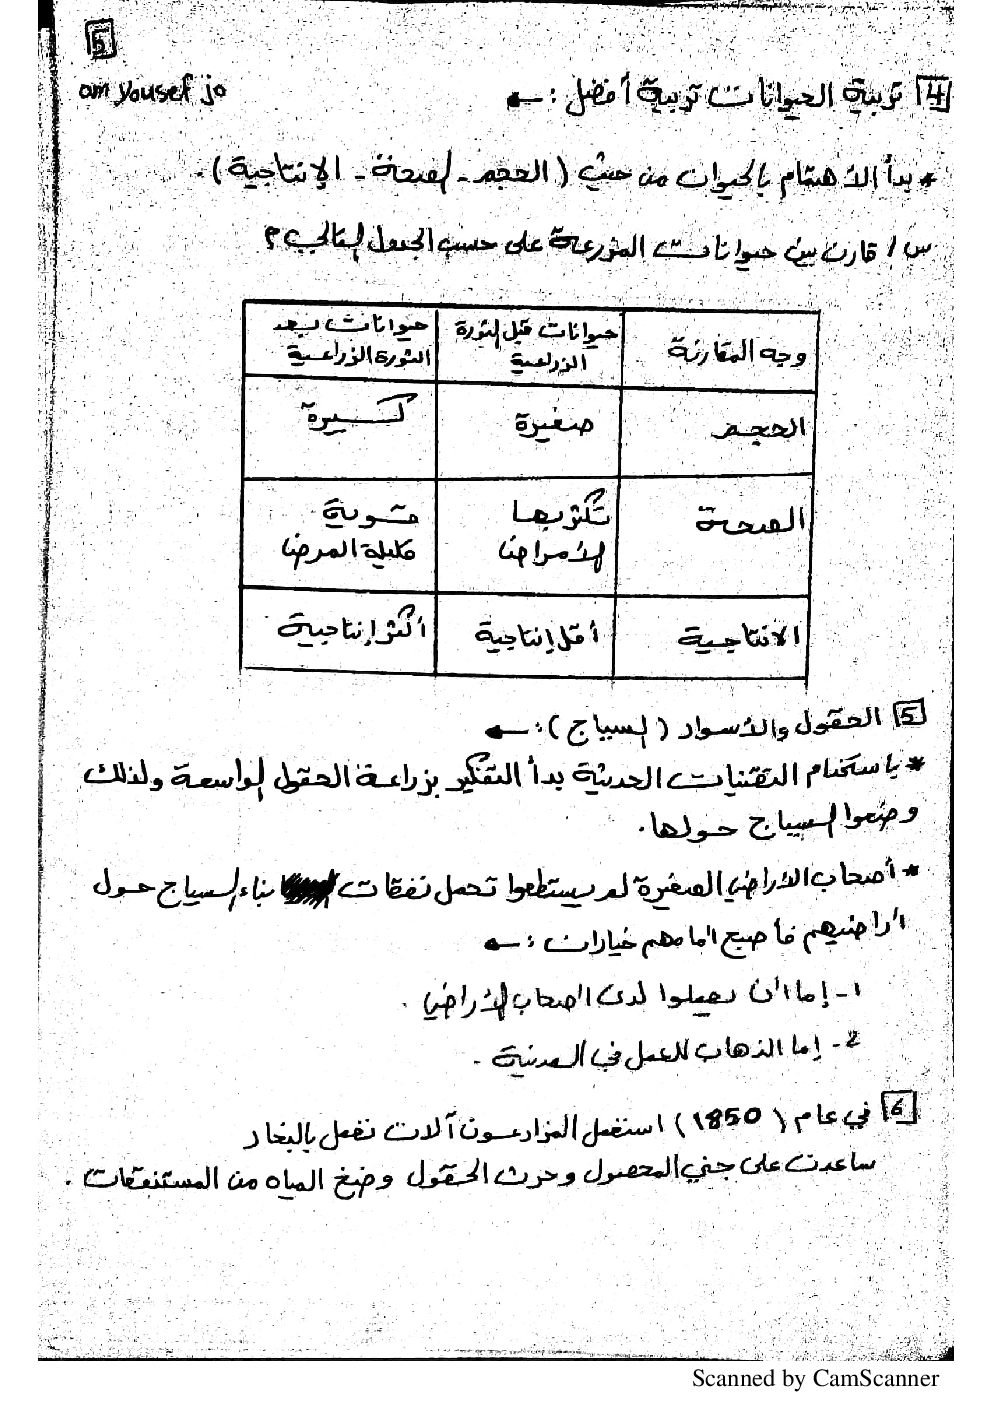 5
om yousef jo
4 تربية الحيوانات تربية أفضل :←
* بدأ الأهتمام بالحيوان من حيث ( الحجم - الصحة - الإنتاجية ) .
س / قارن بين حيوانات المزرعة على حسب الجدول التالي ؟
وجه المقارنة | حيوانات قبل الثورة الزراعية | حيوانات بعد الثورة الزراعية
الحجم | صغيرة | كبيرة
الصحة | تكثر بها الأمراض | قوية قليلة المرض
الانتاجية | أقل إنتاجية | أكثر إنتاجية
5 الحقول والأسوار ( السياج ) :←
* باستخدام التقنيات الحديثة بدأ التفكير بزراعة الحقول الواسعة ولذلك
وضعوا السياج حولها .
* أصحاب الأراضي الصغيرة لم يستطعوا تحمل نفقات بناء السياج حول
أراضيهم فأصبح أمامهم خيارات :←
١- إما أن يعملوا لدى أصحاب الأراضي .
2- إما الذهاب للعمل في المدينة .
6 في عام ( ١850 ) استعمل المزارعون آلات تعمل بالبخار
ساعدت على جني المحصول وحرث الحقول وضخ المياه من المستنقعات .
Scanned by CamScanner